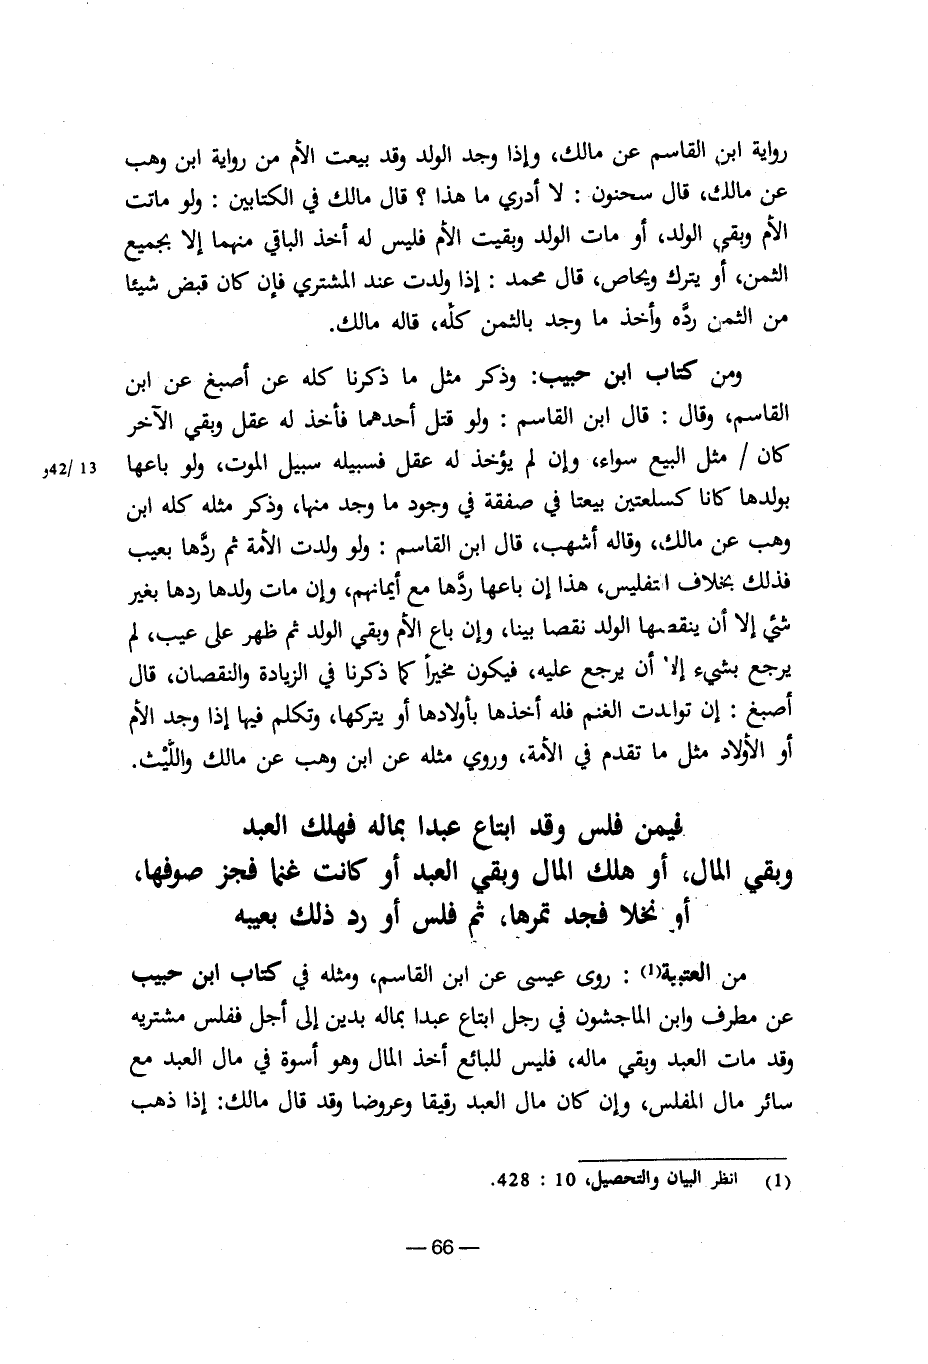 رواية ابن القاسم عن مالك، وإذا وجد الولد وقد بيعت الأم من رواية ابن وهب
عن مالك، قال سحنون : لا أدري ما هذا ؟ قال مالك في الكتابين : ولو ماتت
الأم وبقي الولد، أو مات الولد وبقيت الأم فليس له أخذ الباقي منهما إلا بجميع
الثمن، أو يترك ويحاص، قال محمد : إذا ولدت عند المشتري فإن كان قبض شيئا
من الثمن ردَّه وأخذ ما وجد بالثمن كلّه، قاله مالك.
ومن كتاب ابن حبيب: وذكر مثل ما ذكرنا كله عن أصبغ عن ابن
القاسم، وقال : قال ابن القاسم : ولو قتل أحدهما فأخذ له عقل وبقي الآخر
كان / مثل البيع سواء، وإن لم يؤخذ له عقل فسبيله سبيل الموت، ولو باعها
13 /42و
بولدها كانا كسلعتين بيعتا في صفقة في وجود ما وجد منها، وذكر مثله كله ابن
وهب عن مالك، وقاله أشهب، قال ابن القاسم : ولو ولدت الأمة ثم ردَّها بعيب
فذلك بخلاف التفليس، هذا إن باعها ردَّها مع أيمانهم، وإن مات ولدها ردها بغير
شئ إلا أن ينقصها الولد نقصا بينا، وإن باع الأم وبقي الولد ثم ظهر على عيب، لم
يرجع بشيء إلا أن يرجع عليه، فيكون مخيراً كما ذكرنا في الزيادة والنقصان، قال
أصبغ : إن توالدت الغنم فله أخذها بأولادها أو يتركها، وتكلم فيها إذا وجد الأم
أو الأولاد مثل ما تقدم في الأمة، وروي مثله عن ابن وهب عن مالك واللّيْث.
فيمن فلس وقد ابتاع عبدا بماله فهلك العبد
وبقي المال، أو هلك المال وبقي العبد أو كانت غنما فجز صوفها،
أو نخلا فجد تمرها، ثم فلس أو رد ذلك بعيبه
من العتبية(1) : روى عيسى عن ابن القاسم، ومثله في كتاب ابن حبيب
عن مطرف وابن الماجشون في رجل ابتاع عبدا بماله بدين إلى أجل ففلس مشتريه
وقد مات العبد وبقي ماله، فليس للبائع أخذ المال وهو أسوة في مال العبد مع
سائر مال المفلس، وإن كان مال العبد رقيقا وعروضا وقد قال مالك: إذا ذهب
(1) انظر البيان والتحصيل، 10 : 428.
— 66 —